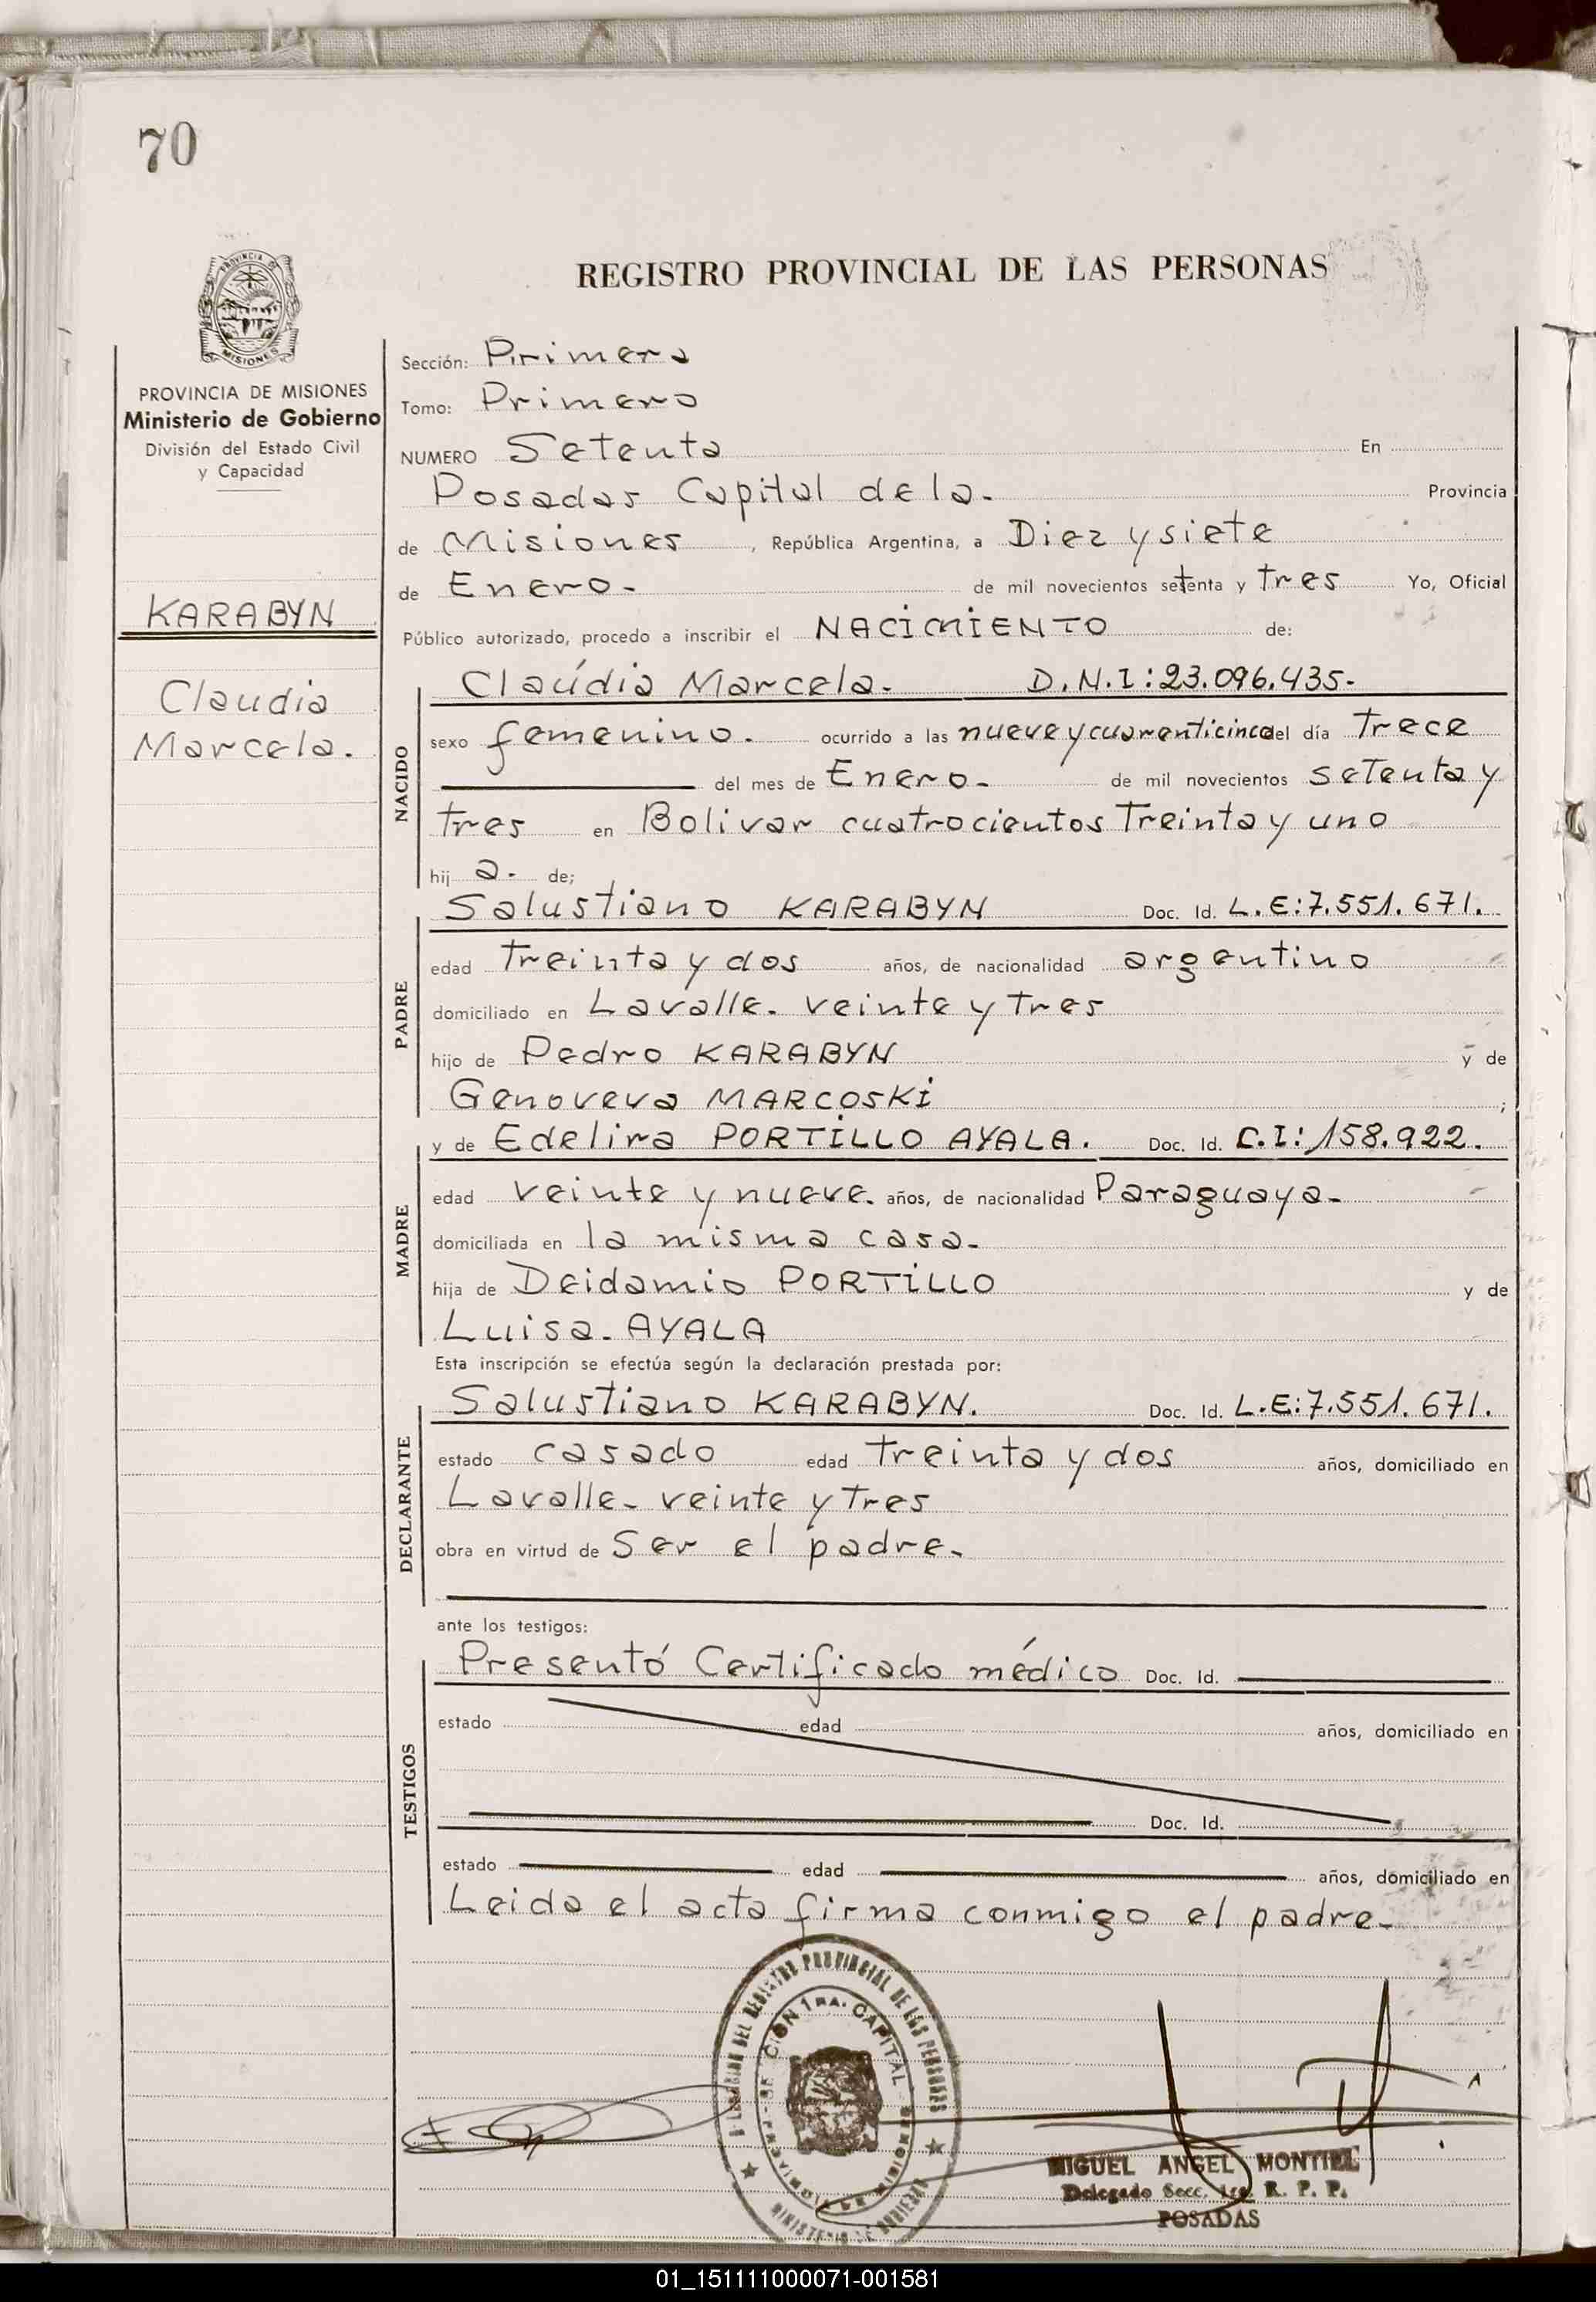 70
REGISTRO PROVINCIAL DE LAS PERSONAS
PROVINCIA DE MISIONES
PROVINCIA DE MISIONES
Ministerio de Gobierno
División del Estado Civil
y Capacidad
KARABYN
Claudia
Marcela.
Sección: Primera
Tomo: Primero
NUMERO Setenta En
Posadas Capital de la. Provincia
de Misiones, República Argentina, a Diez y siete
de Enero. de mil novecientos setenta y tres Yo, Oficial
Público autorizado, procedo a inscribir el NACIMIENTO de:
NACIDO
Claúdia Marcela. D.N.I:23.096.435.
sexo femenino. ocurrido a las nueve y cuarenticinco del día trece
del mes de Enero. de mil novecientos setenta y
tres en Bolivar cuatrocientos Treinta y uno
hij a. de;
PADRE
Salustiano KARABYN Doc. Id. L.E:7.551.671.
edad treinta y dos años, de nacionalidad argentino
domiciliado en Lavalle. veinte y tres
hijo de Pedro KARABYN y de
Genoveva MARCOSKI ;
MADRE
y de Edelira PORTILLO AYALA. Doc. Id. C.I:158.922.
edad veinte y nueve. años, de nacionalidad Paraguaya.
domiciliada en la misma casa.
hija de Deidamio PORTILLO y de
Luisa. AYALA
Esta inscripción se efectúa según la declaración prestada por:
DECLARANTE
Salustiano KARABYN. Doc. Id. L.E:7.551.671.
estado casado edad treinta y dos años, domiciliado en
Lavalle. veinte y tres
obra en virtud de Ser el padre.
ante los testigos:
TESTIGOS
Presentó Certificado médico Doc. Id.
estado edad años, domiciliado en
Doc. Id.
estado edad años, domiciliado en
Leida el acta firma conmigo el padre.
DEL REGISTRO PROVINCIAL DE LAS PERSONAS
SECCION 1RA. CAPITAL
MINISTERIO DE GOBIERNO
MIGUEL ANGEL MONTIEL
Delegado Secc. 1ra. R. P. P.
POSADAS
01_151111000071-001581